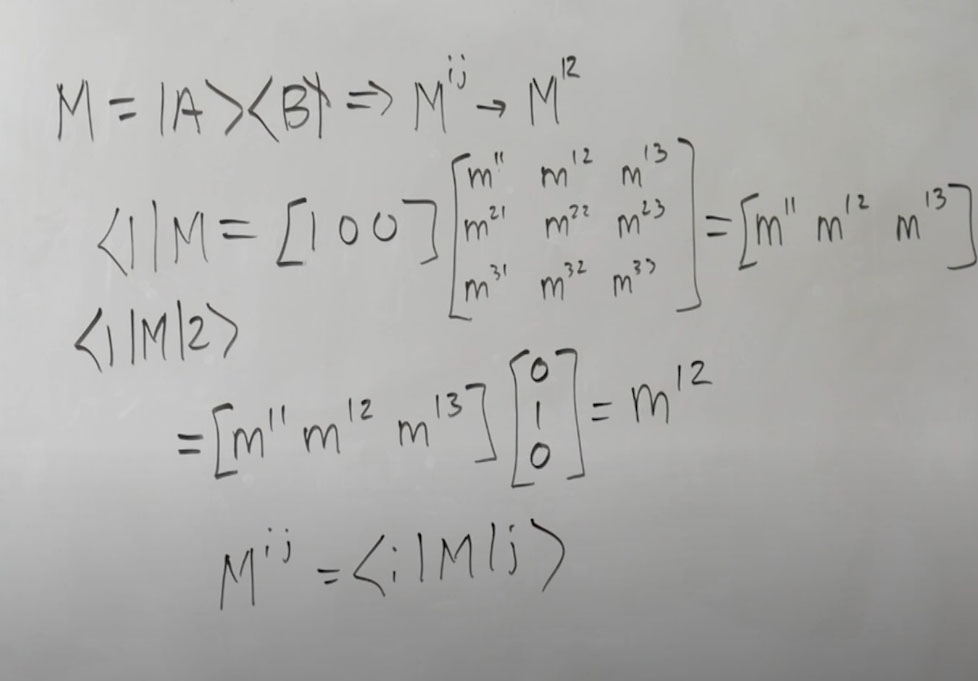 M = |A><B| => M^ij → M^12
<1|M = [1 0 0] [m^11 m^12 m^13
m^21 m^22 m^23
m^31 m^32 m^33] = [m^11 m^12 m^13]
<1|M|2>
= [m^11 m^12 m^13] [0
1
0] = m^12
M^ij = <i|M|j>